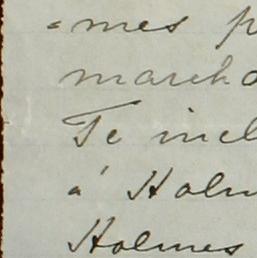 =mes p
march
Te incl
á Holm
Holmes